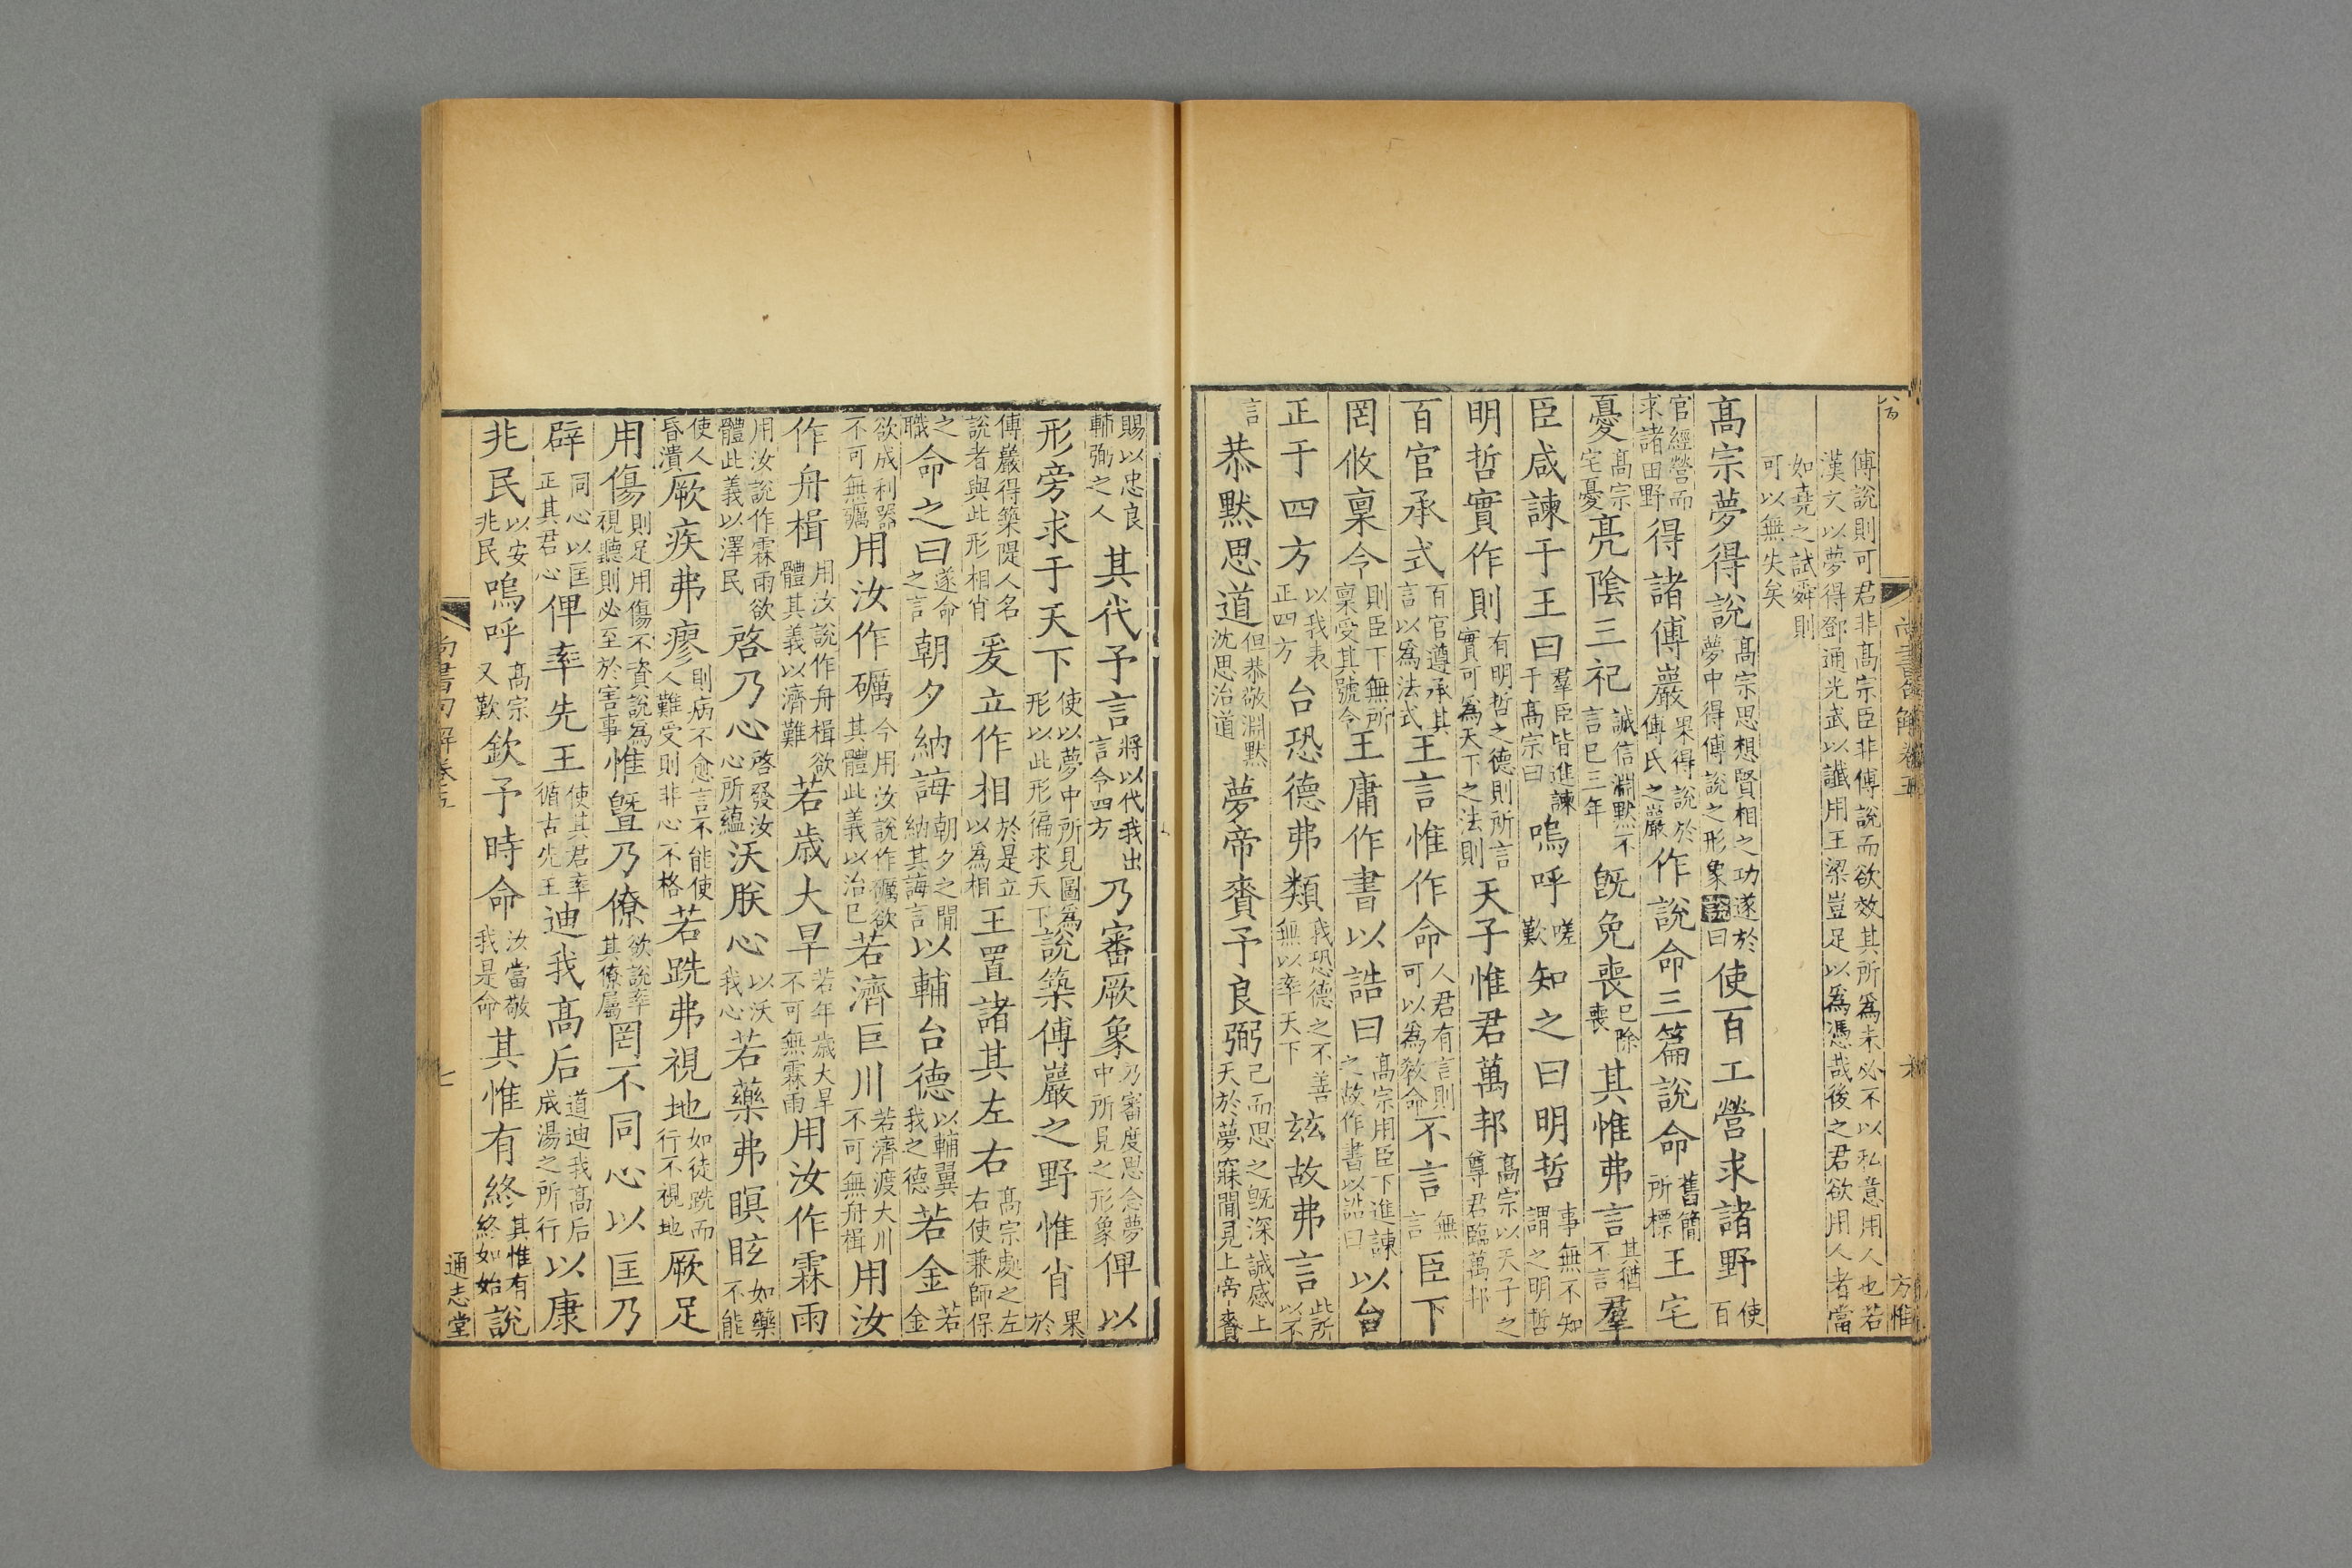 傅說則可君非高宗臣非傅說而欲效其所爲未必不以私意用人也若
漢文以夢得鄧通光武以讖用王梁豈足以爲憑哉後之君欲用人者當
如堯之試舜則
可以無失矣
高宗夢得說高宗思想賢相之功遂於夢中得傅說之形象説曰使百工營求諸野使百
官經營而求諸田野得諸傅巖果得說於傅氏之巖作說命三篇說命舊簡所標王宅
憂高宗宅憂亮陰三祀誠信淵默不言已三年旣免喪已除喪其惟弗言其猶不言羣
臣咸諫于王曰羣臣皆進諫于高宗曰嗚呼嗟歎知之曰明哲事無不知謂之明哲
明哲實作則有明哲之德則所言實可爲天下之法則天子惟君萬邦高宗以天子之尊君臨萬邦
百官承式百官遵承其言以爲法式王言惟作命人君有言則可以爲敎命不言無言臣下
罔攸稟令則臣下無所稟受其號令王庸作書以誥曰高宗用臣下進諫之故作書以誥曰以台
正于四方以我表正四方台恐德弗類我恐德之不善無以率天下玆故弗言此所以不
言恭默思道但恭敬淵默沈思治道夢帝賚予良弼己而思之旣深誠感上天於夢寐閒見上帝賚
賜以忠良輔弼之人其代予言將以代我出言令四方乃審厥象乃審度思念夢中所見之形象俾以
形旁求于天下使以夢中所見圖爲形以此形徧求天下說築傅巖之野惟肖果於
傅巖得築隄人名說者與此形相肖爰立作相於是立以爲相王置諸其左右高宗處之左右使兼師保
之職命之曰遂命之言朝夕納誨朝夕之閒納其誨言以輔台德以輔翼我之德若金若金
欲成利器不可無礪用汝作礪今用汝說作礪欲其體此義以治已若濟巨川若濟渡大川不可無舟楫用汝
作舟楫用汝說作舟楫欲體其義以濟難若歲大旱若年歲大旱不可無霖雨用汝作霖雨
用汝說作霖雨欲體此義以澤民啓乃心啓發汝心所蘊沃朕心以沃我心若藥弗瞑眩如藥不能
使人昏潰厥疾弗瘳則病不愈言不能使人難受則非心不格若跣弗視地如徒跣而行不視地厥足
用傷則足用傷不資說爲視聽則必至於害事惟曁乃僚欲說率其僚屬罔不同心以匡乃
辟同心以匡正其君心俾率先王使其君率循古先王迪我高后道迪我高后成湯之所行以康
兆民以安兆民嗚呼高宗又歎欽予時命汝當敬我是命其惟有終其惟有終如始說
尚書句解卷五
七
通志堂